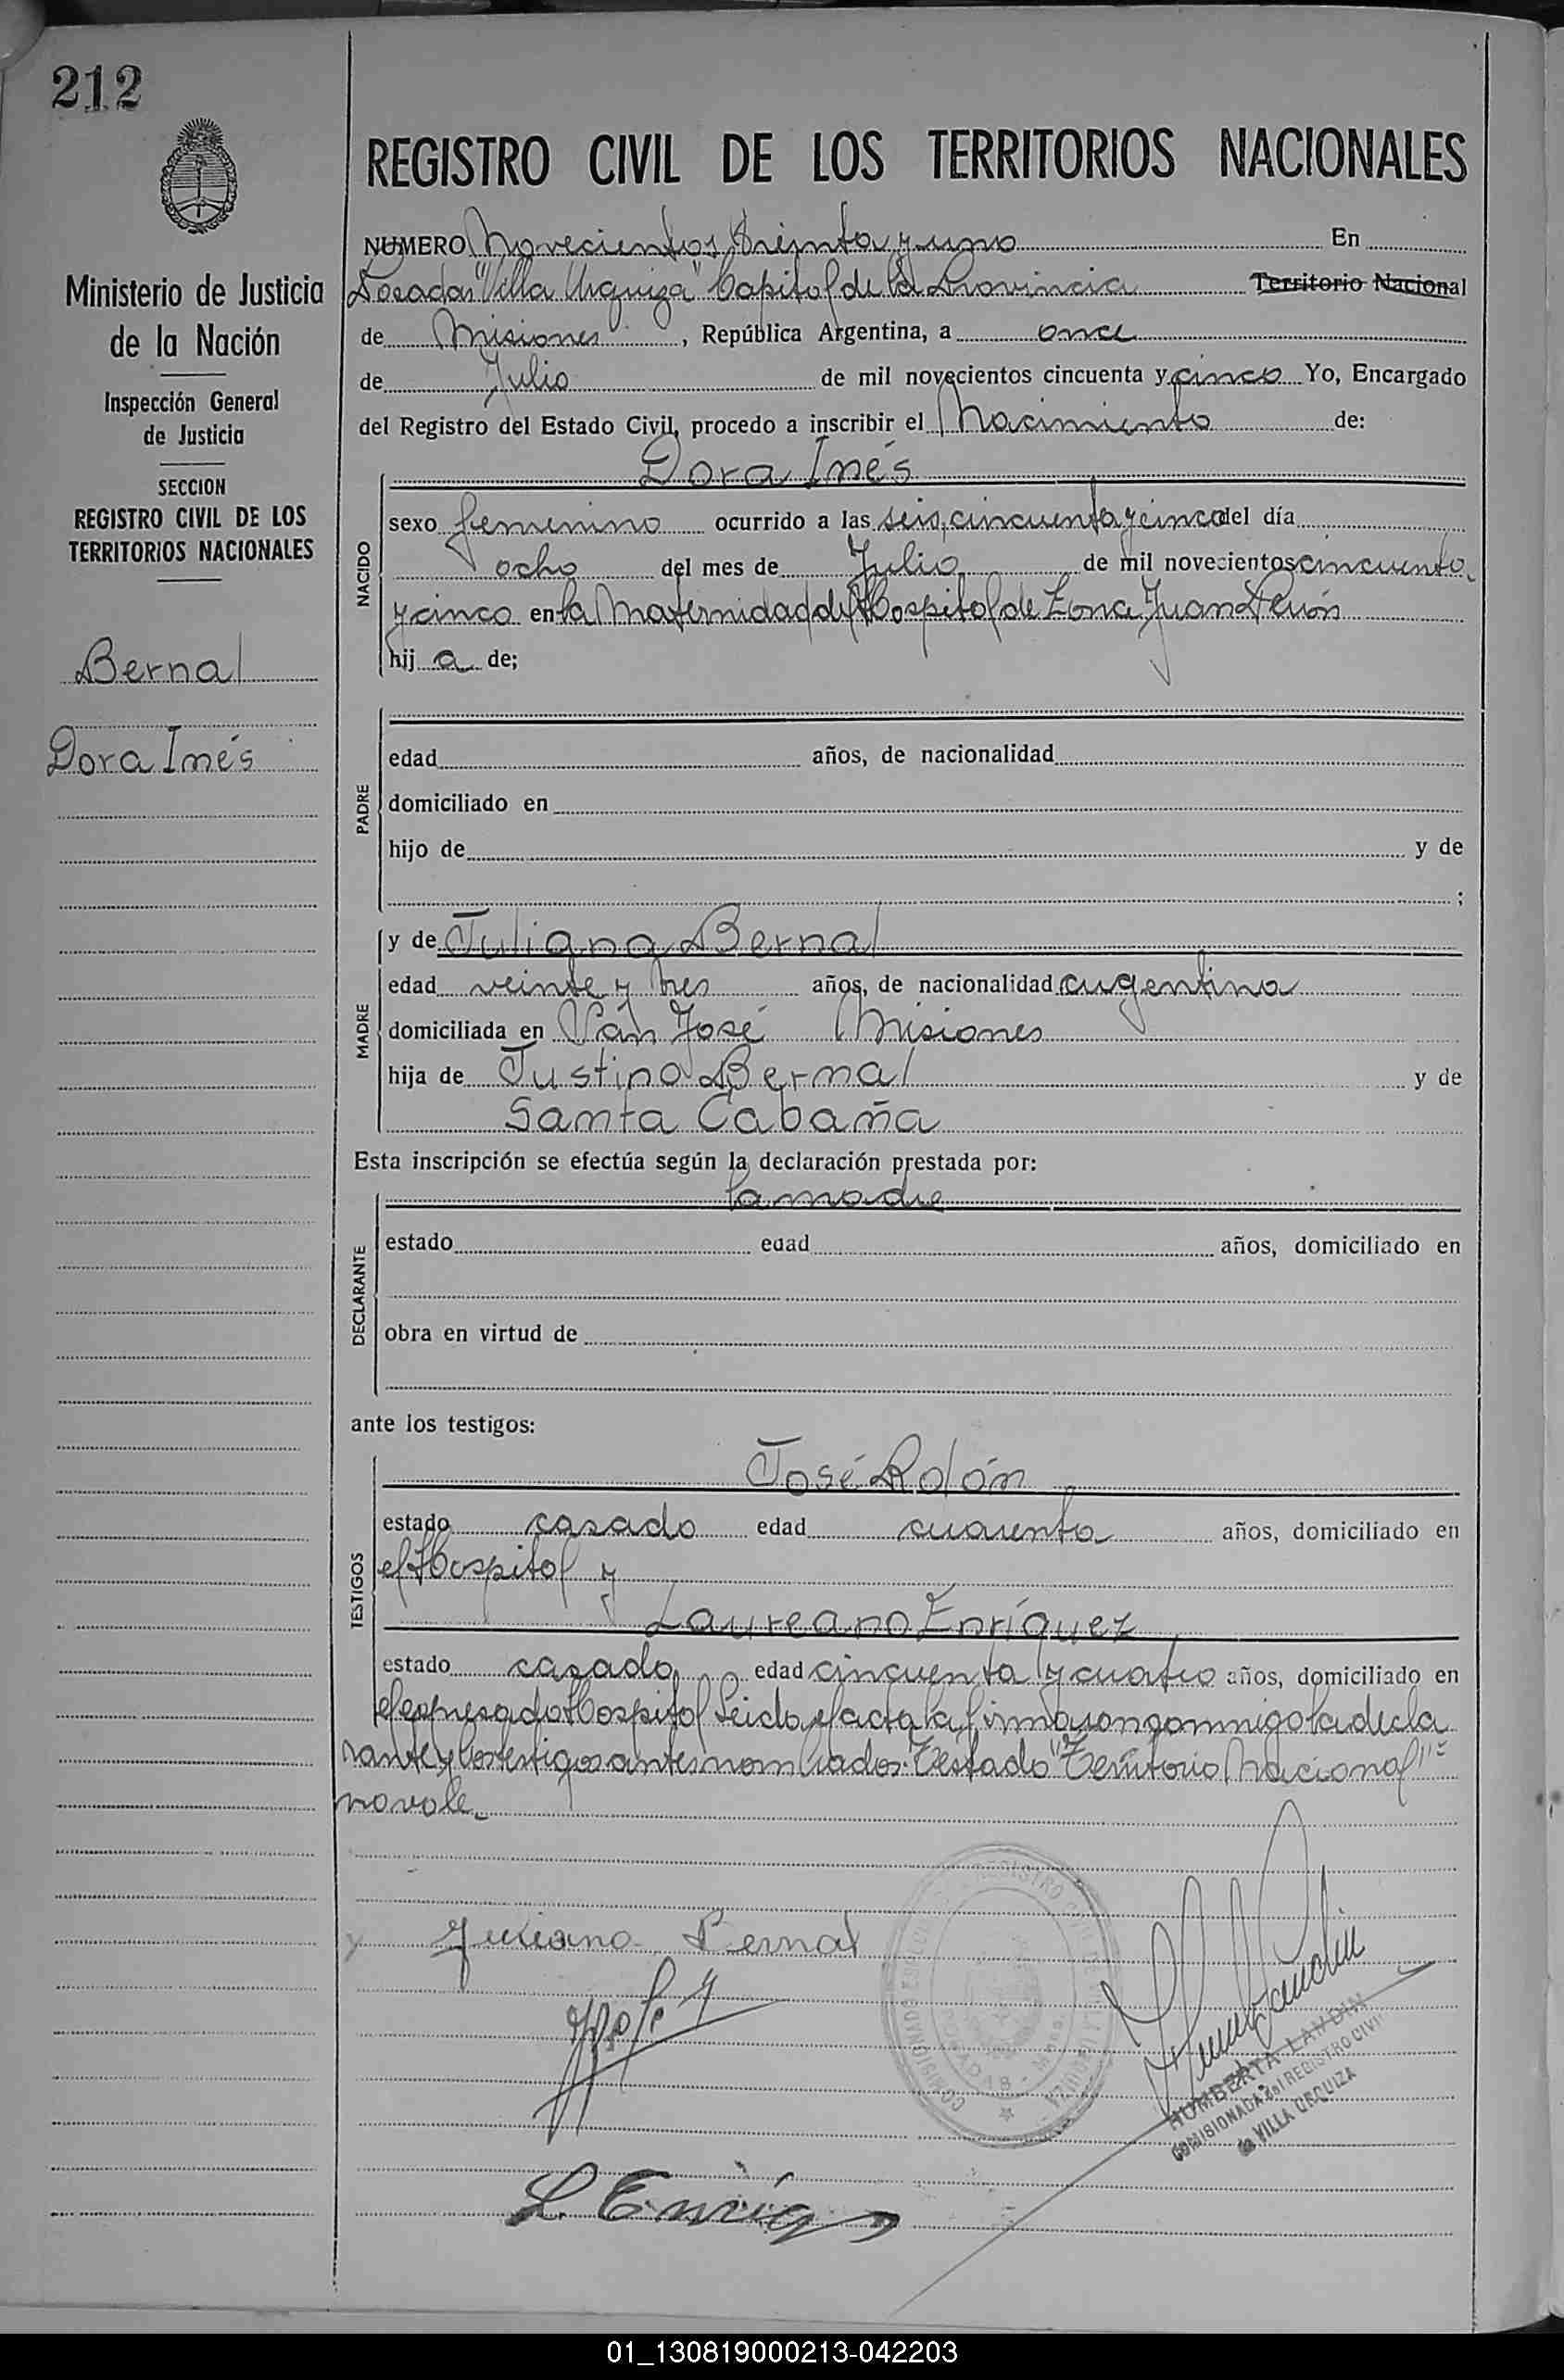 212
Ministerio de Justicia
de la Nación
Inspección General
de Justicia
SECCION
REGISTRO CIVIL DE LOS
TERRITORIOS NACIONALES
Bernal
Dora Inés
REGISTRO CIVIL DE LOS TERRITORIOS NACIONALES
NUMERO Novecientos treinta y uno En
Posadas "Villa Urquiza" Capital de la Provincia Territorio Nacional
de Misiones, República Argentina, a once
de Julio de mil novecientos cincuenta y cinco Yo, Encargado
del Registro del Estado Civil, procedo a inscribir el Nacimiento de:
Dora Inés
NACIDO
sexo femenino ocurrido a las seis, cincuenta y cinco del día
ocho del mes de Julio de mil novecientos cincuenta
y cinco en la Maternidad del Hospital de Zona Juan Perón
hij a de;
PADRE
edad años, de nacionalidad
domiciliado en
hijo de y de
;
MADRE
y de Juliana Bernal
edad veinte y tres años, de nacionalidad argentina
domiciliada en San José Misiones
hija de Justino Bernal y de
Santa Cabaña
Esta inscripción se efectúa según la declaración prestada por:
la madre
DECLARANTE
estado edad años, domiciliado en
obra en virtud de
ante los testigos:
TESTIGOS
José Rolón
estado casado edad cuarenta años, domiciliado en
el Hospital y
Laureano Enríquez
estado casado, edad cincuenta y cuatro años, domiciliado en
el expresado Hospital Leida el acta la firmaron conmigo la decla
rante y los testigos antes nombrados. Testado "Territorio Nacional" =
no vale.
Juliana Bernal
L. Enríq
REGISTRO CIVIL
POSADAS - Mnes.
HUMBERTA LANDIN
COMISIONADA del REGISTRO CIVIL
de VILLA URQUIZA
01_130819000213-042203